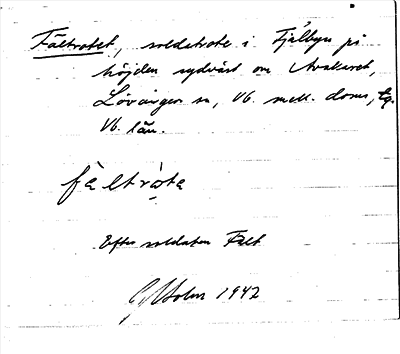 Fältrotet, soldatrote i Fjälbyn på
höjden sydväst om Avakeret,
Lövångers sn, Vb. mell. doms, tg.
Vb. län.
fältròta
Efter soldaten Fält
Holm 1942